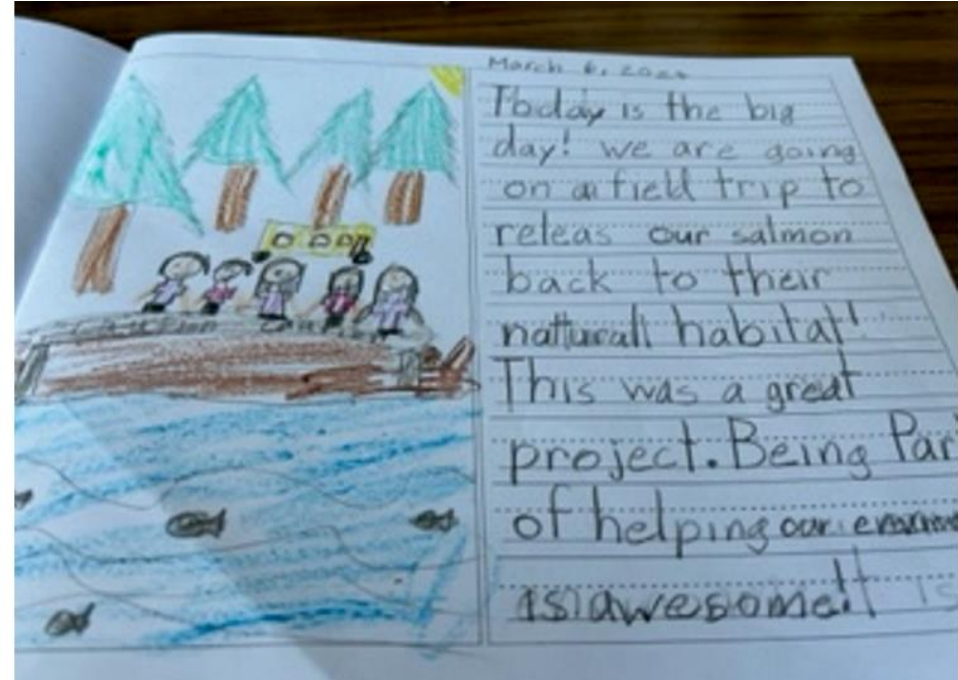 March 6, 202
Today is the big
day! we are going
on a field trip to
releas our salmon
back to their
naturall habitat!
This was a great
project. Being Par
of helping our
is awesome! It is
Caution